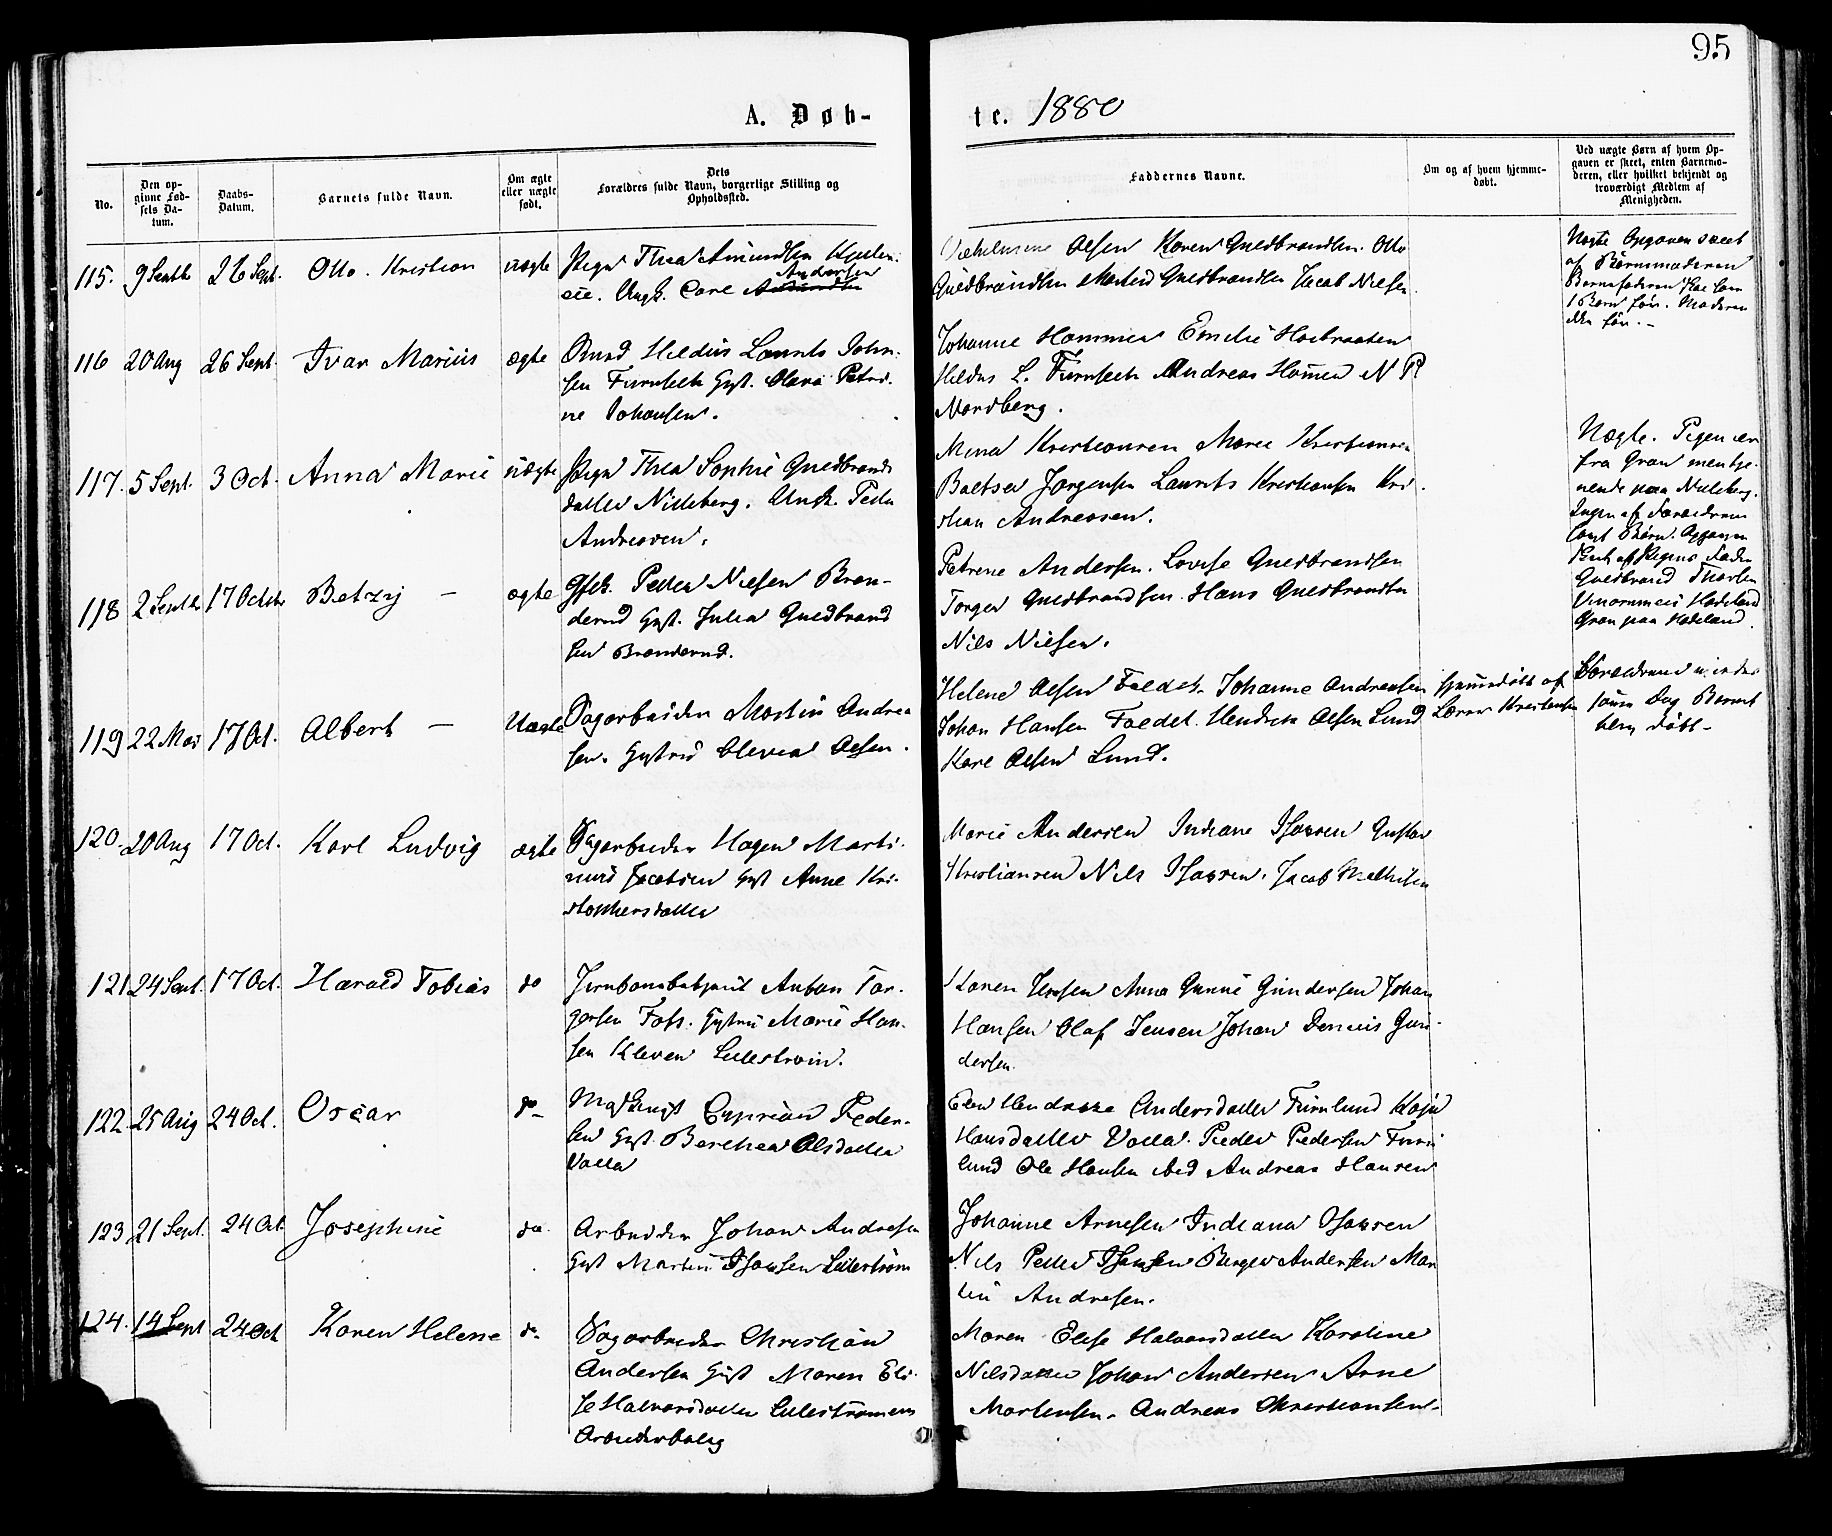 95
A. Døb-
te. 1880
No.
Den op-
givne Fød-
sels Da-
tum.
Daabs-
Datum.
Barnets fulde Navn.
Om ægte
eller uægte
født.
Dets
Forældres fulde Navn, borgerlige Stilling og
Opholdssted.
Faddernes Navne.
Om og af hvem hjemme-
døbt.
Ved uægte Børn af hvem Op-
gaven er skeet, enten Barnemo-
deren, eller hvilket bekjendt og
troværdigt Medlem af
Menigheden.
115. 9 Septbr 26 Sept. Otto Kristian uægte
Pige Thea Amundsen
eie. Ungk. Carl Andersen
Olsen Karen Guldbrandsen Otto
Guldbrandsen Martin Guldbrandsen Jacob Nielsen
Uægte Opgaven skeet
af Barnemoderen
Barnefaderen har havt
1 Barn før. Moderen
ikke før.-
116 20 Aug 26 Sept. Ivar Marius ægte
Hildus Laurits John-
sen Furuseth Gift. Olava Petri-
ne Johansen.
Johanne Hammer Emilie Holbraaten
Hildus L. Furuseth Andreas Hamer N P
Nordberg.
117. 5 Sept. 3 Oct. Anna Marie uægte
Pige Thea Sophie Guldbrands
datter Nitteberg. Ungk. Peder
Andreasen.
Mina Kristiansen Marie Kristiansen
Baltser Jørgensen Laurits Kristiansen Kri-
stian Andreasen.
Uægte. Pigen er
fra Gran men tje-
nende paa Nitteberg.
Ingen af Forældrene
havt Børn. Opgaven
skeet af Pigens Fader
Guldbrand
Hadeland
Gran paa Hadeland.
118 2 Septbr 17 Octbr Betzy - ægte
Gfbr. Peder Nielsen Bran-
derud Gift. Julia Guldbrand
sen Branderud.
Petrine Andersen. Lovise Guldbrandsen
Torger Guldbrandsen. Hans Guldbrandsen
Nils Nielsen.
119 22 Mai 17 Oct. Albert - Uægte
Sagarbeider Martin Andrea
sen. Gift med Olevia Olsen.
Helene Olsen Faldet. Johanne Andreasen
Johan Hansen Faldet. Hendrik Olsen Lund
Karl Olsen Lund.
hjemmedøbt af
Lærer Kristensen
Forældrene viet den
samme Dag Barnet
blev døbt-
120. 20 Aug 17 Oct. Karl Ludvig ægte
Sagarbeider Hagen Marti-
nius Jacobsen Gift Anne Kri-
stophersdatter
Marie Andersen Indiane Isaksen Gustav
Kristiansen Nils Isaksen. Jacob Mathisen
121 24 Sept. 17 Oct. Harald Tobias do
Jernbanebetjent Anton Tor-
gersen Foss. Gift m Marie Han-
sen Kleven Lillestrøm.
Karen Jensen Anna Gunni Gundersen Johan
Hansen Olaf Jensen Johan Denius Gun-
dersen.
122. 25 Aug 24 Oct. Oscar do-
Cyprian Peder-
sen Gift. Berthea Olsdatter
Valla
Elen Hendrikke Andersdatter Furulund Kaja
Hansdatter Valla. Peder Pedersen Furu
lund Ole Hansen Aas Andreas Hansen
123 21 Sept. 24 Oct. Josephine do.
Arbeider Johan Andresen
Gift Martine Isaksen Lillestrøm
Johanne Arnesen Indiana Isaksen
Nils Peder Isaksen Birger Andersen Mar
tin Andresen.
124. 14 Sept 24 Oct Karen Helene do
Sagarbeider Christian
Andersen Gift Maren Eli-
se Halvorsdatter Lillestrømens
Arbeiderbolig
Maren Elise Halvorsdatter Karoline
Nilsdatter Johan Andersen Arne
Mortensen. Andreas Christiansen.